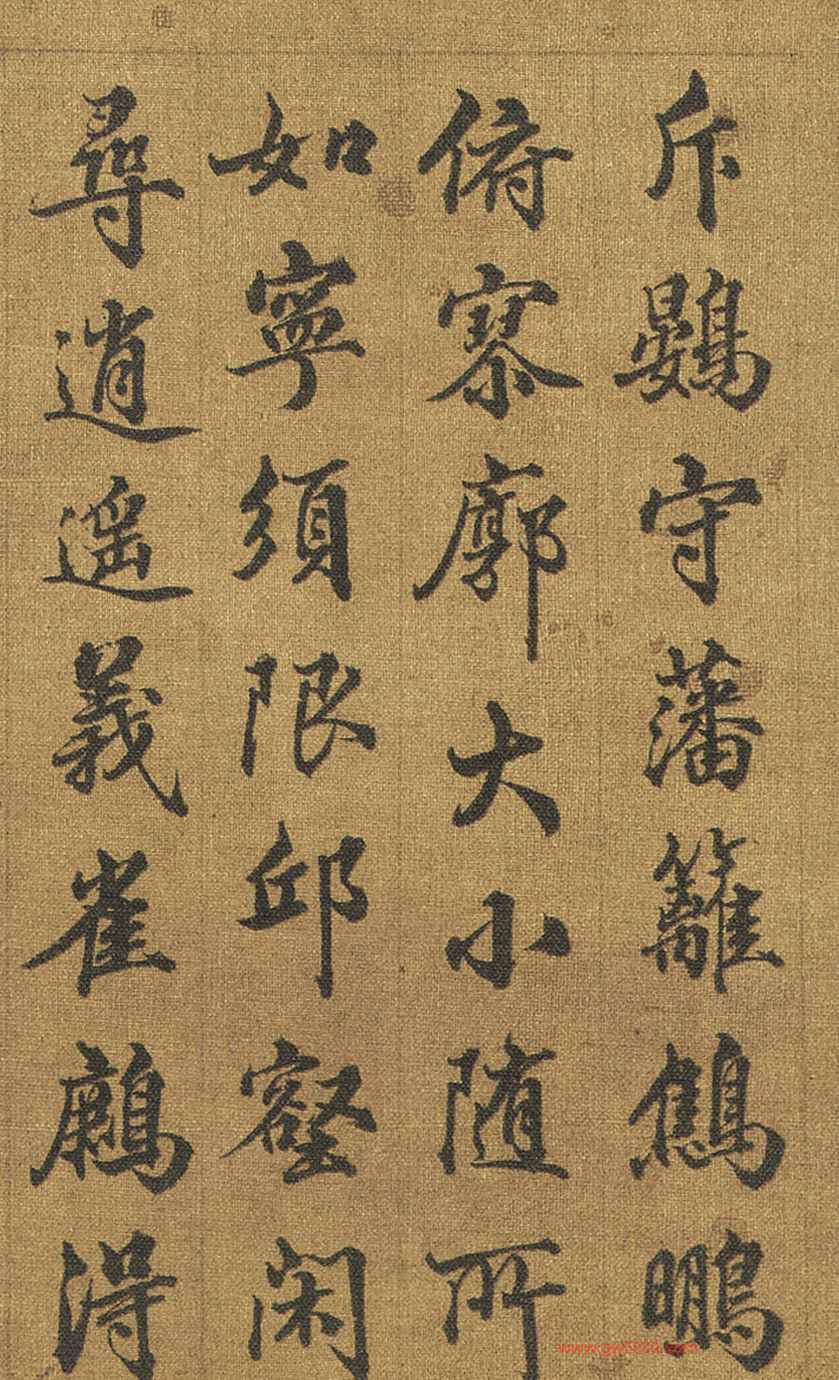 斥鷃守藩籬鷦鵬
俯寥廓大小随所
如寧須限邱壑闲
尋逍遥義雀鷃得
www.gw5000.com